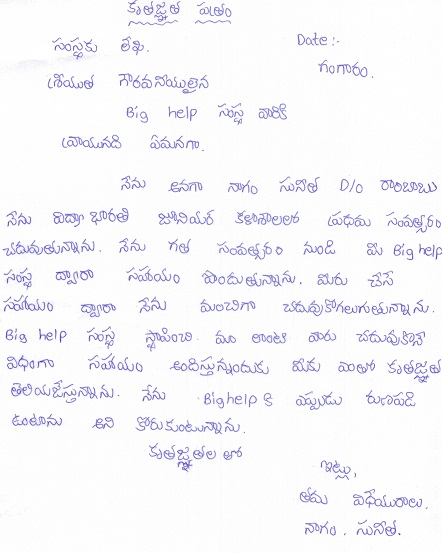 కృతజ్ఞత పత్రం
సంస్థకు లేఖ.
Date :-
గంగారం.
శ్రీయుత గౌరవనీయులైన
Big help సంస్థ వారికి
వ్రాయునది ఏమనగా.
నేను అనగా నాగం సునీత D/O రాంబాబు
నేను విద్యా భారతి జూనియర్ కళాశాలలో ప్రథమ సంవత్సరం
చదువుతున్నాను. నేను గత సంవత్సరం నుండి మీ Big help
సంస్థ ద్వారా సహాయం పొందుతున్నాను. మీరు చేసే
సహాయం ద్వారా నేను మంచిగా చదువుకోగలుగుతున్నాను.
Big help సంస్థ స్థాపించి. మం లాంటి వారు చదువుకొనే
విధంగా సహాయం అందిస్తున్నందుకు మీకు ఎంతో కృతజ్ఞత
తెలియజేస్తున్నాను. నేను Big help కి ఎప్పుడు రుణపడి
ఉంటాను అని కోరుకుంటున్నాను.
కృతజ్ఞతల తో
ఇట్లు,
తమ విధేయురాలు.
నాగం. సునీత.